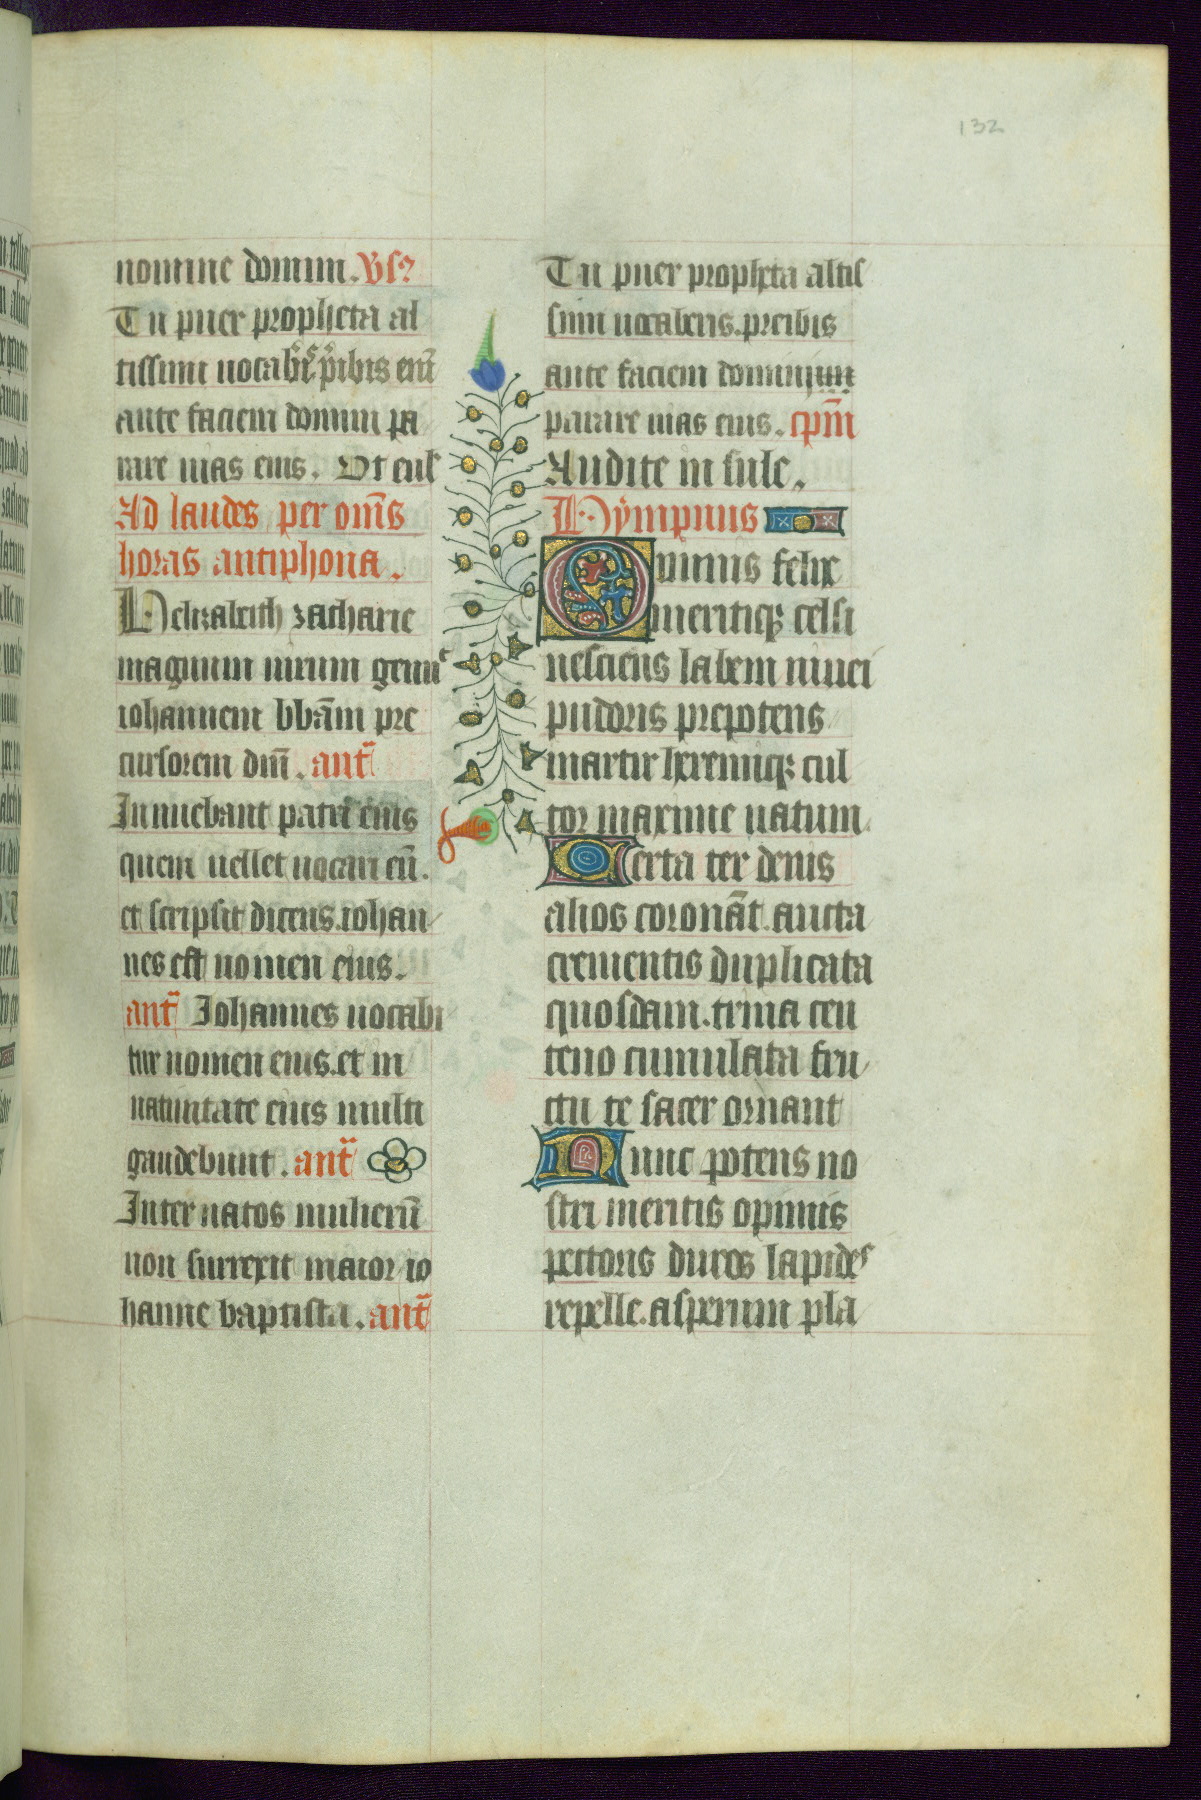 132
nomine domini. Vs?
Tu puer propheta al
tissimi uocab̾is p̾ibis eni̅
ante faciem domini pa
rare uias eius. Vt cu̅
Ad laudes per om̅s
horas antiphona.
Helizabeth zacharie
magnum uirum genu
iohannem bb̅am pre
cursorem dm̅. ant̅
Innuebant patri eius
quem uellet uocari eu̅.
et scripsit dicens. iohan
nes est nomen eius.
ant̅ Iohannes uocabi
tur nomen eius. et in
natiuitate eius multi
gaudebunt. ant̅
Inter natos mulieru̅
non surrexit maior io
hanne baptista. ant̅
Tu puer propheta altis
simi uocaberis. preibis
ante faciem domini
parare uias eius. cpm̅
Audite insule.
Hympnus
O nimis felix
meritiq3 celsi
nesciens labem niuei
pudoris prepotens
martir heremiq3 cul
tor maxime uatum
Serta ter denis
alios corona̅t aucta
crementis duplicata
quosdam. trina cen
teno cumulata fru
ctu te sacer ornant
Nunc potens no
stri meritis opimis
pectoris duros lapides
repelle. asperum pla